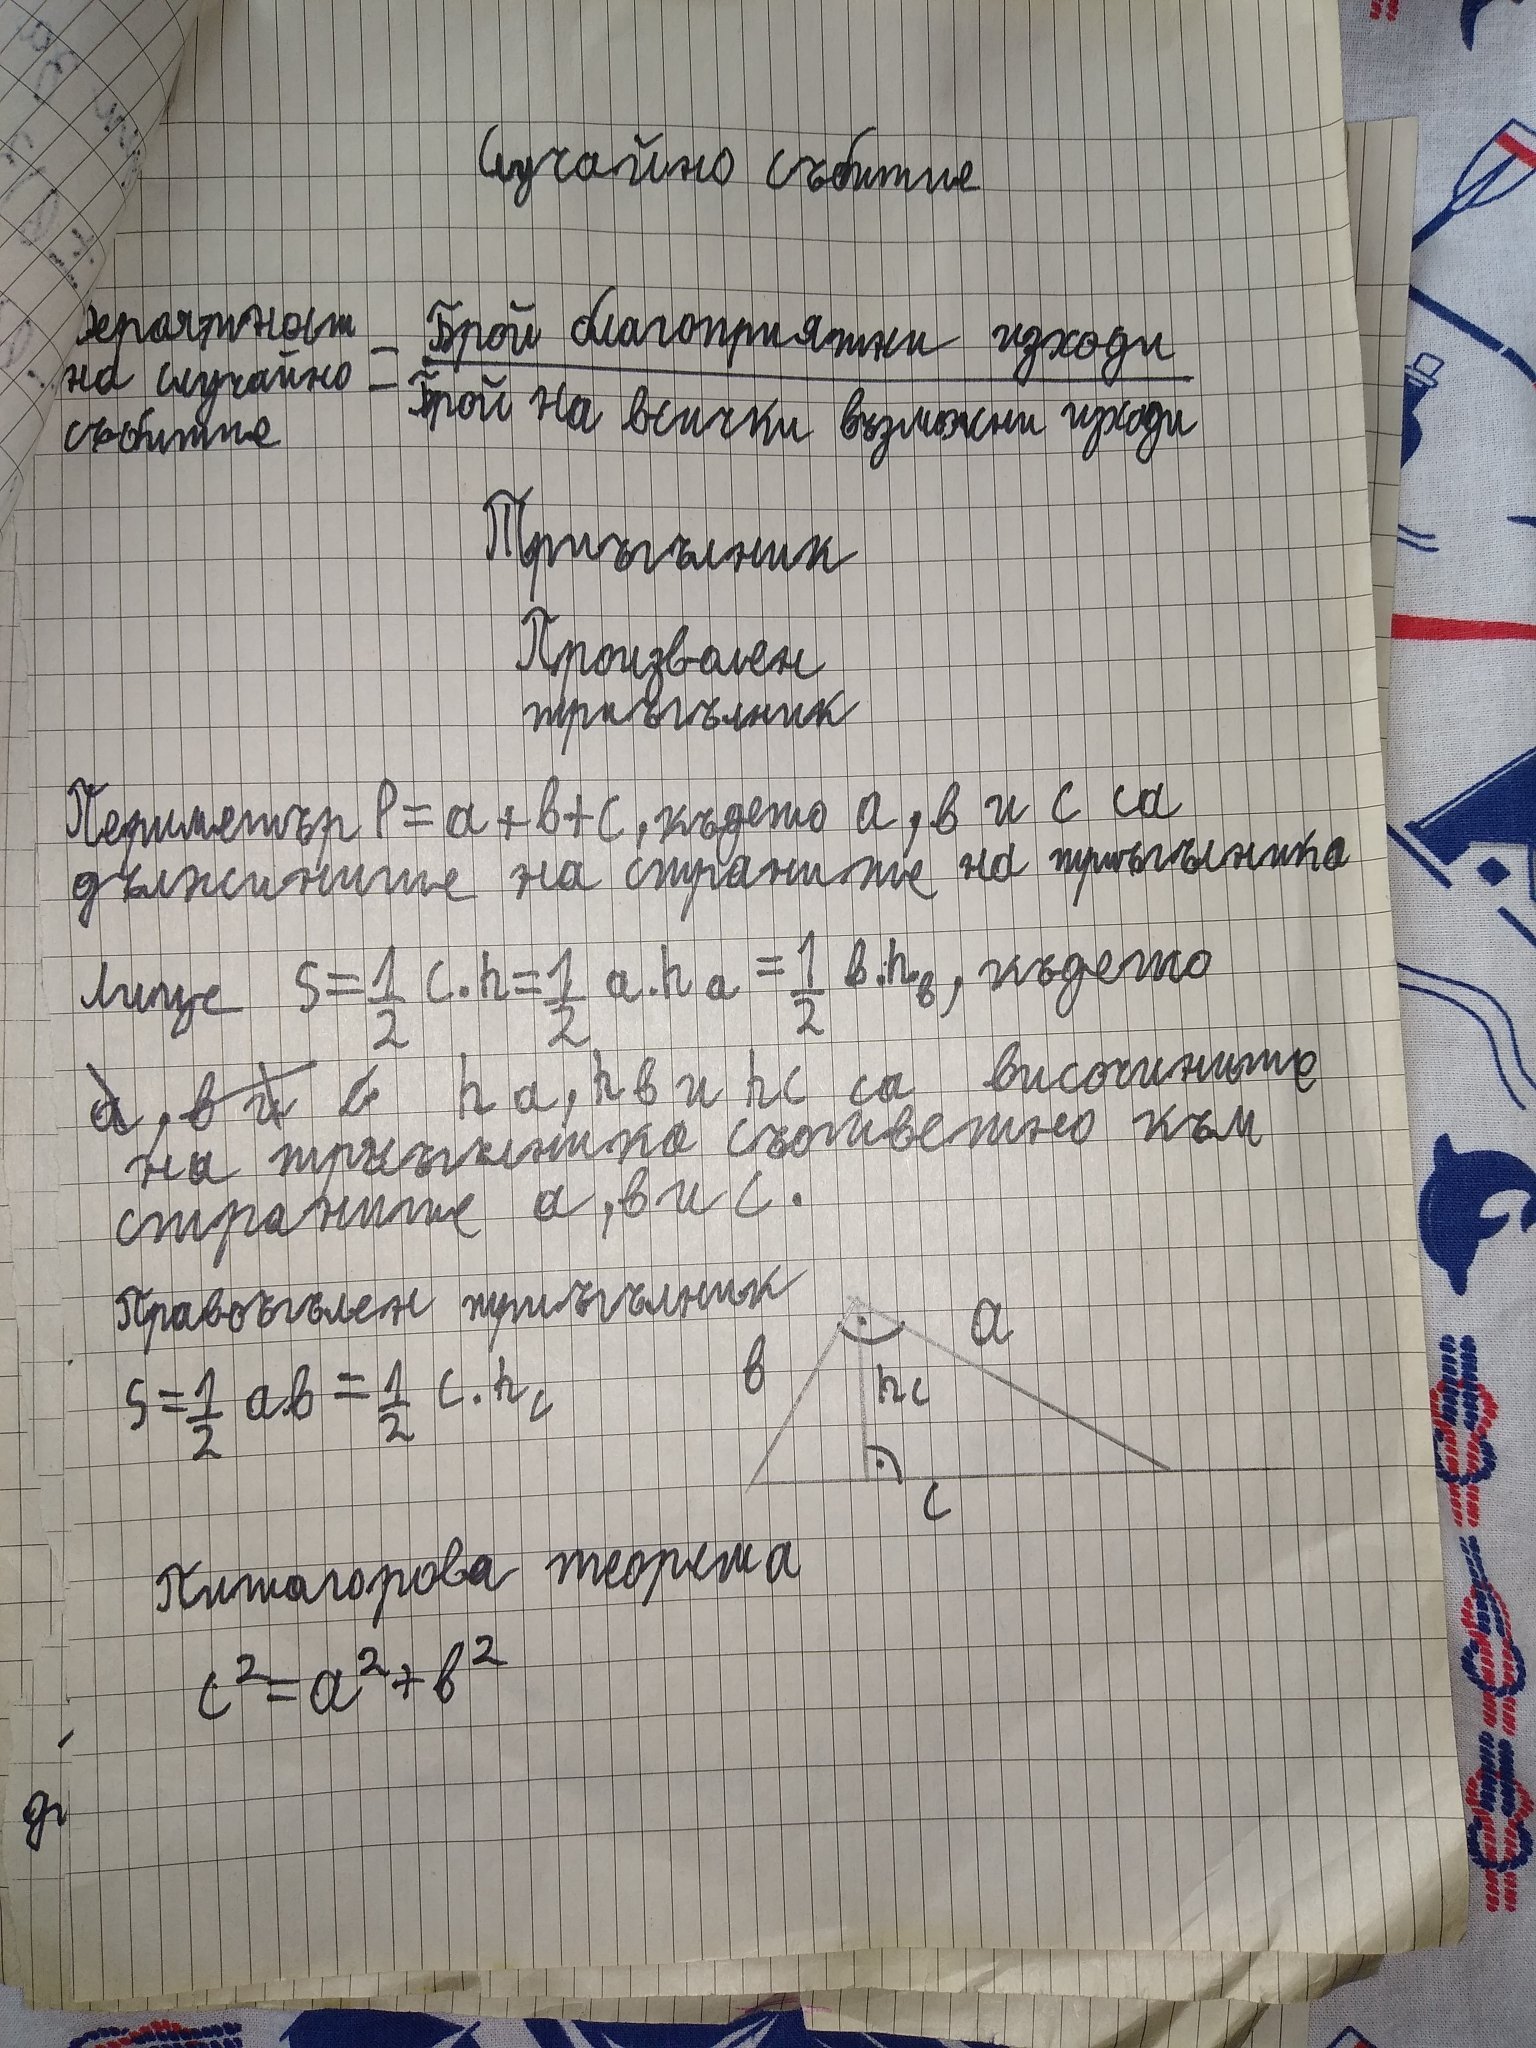 Случайно събитие
Вероятност
на случайно
събитие
=
Брой благоприятни изходи
Брой на всички възможни изходи
Триъгълник
Произволен
триъгълник
Периметър P=a+b+c, където a, b и c са
дължините на страните на триъгълника
Лице S=1/2 c.h=1/2 a.h a=1/2 b.h b, където
a, b и c h a, h b и h c са височините
на триъгълника съответно към
страните a, b и c.
Правоъгълен триъгълник
S=1/2 a.b=1/2 c.h c
b
a
h c
c
Питагорова теорема
c²=a²+b²